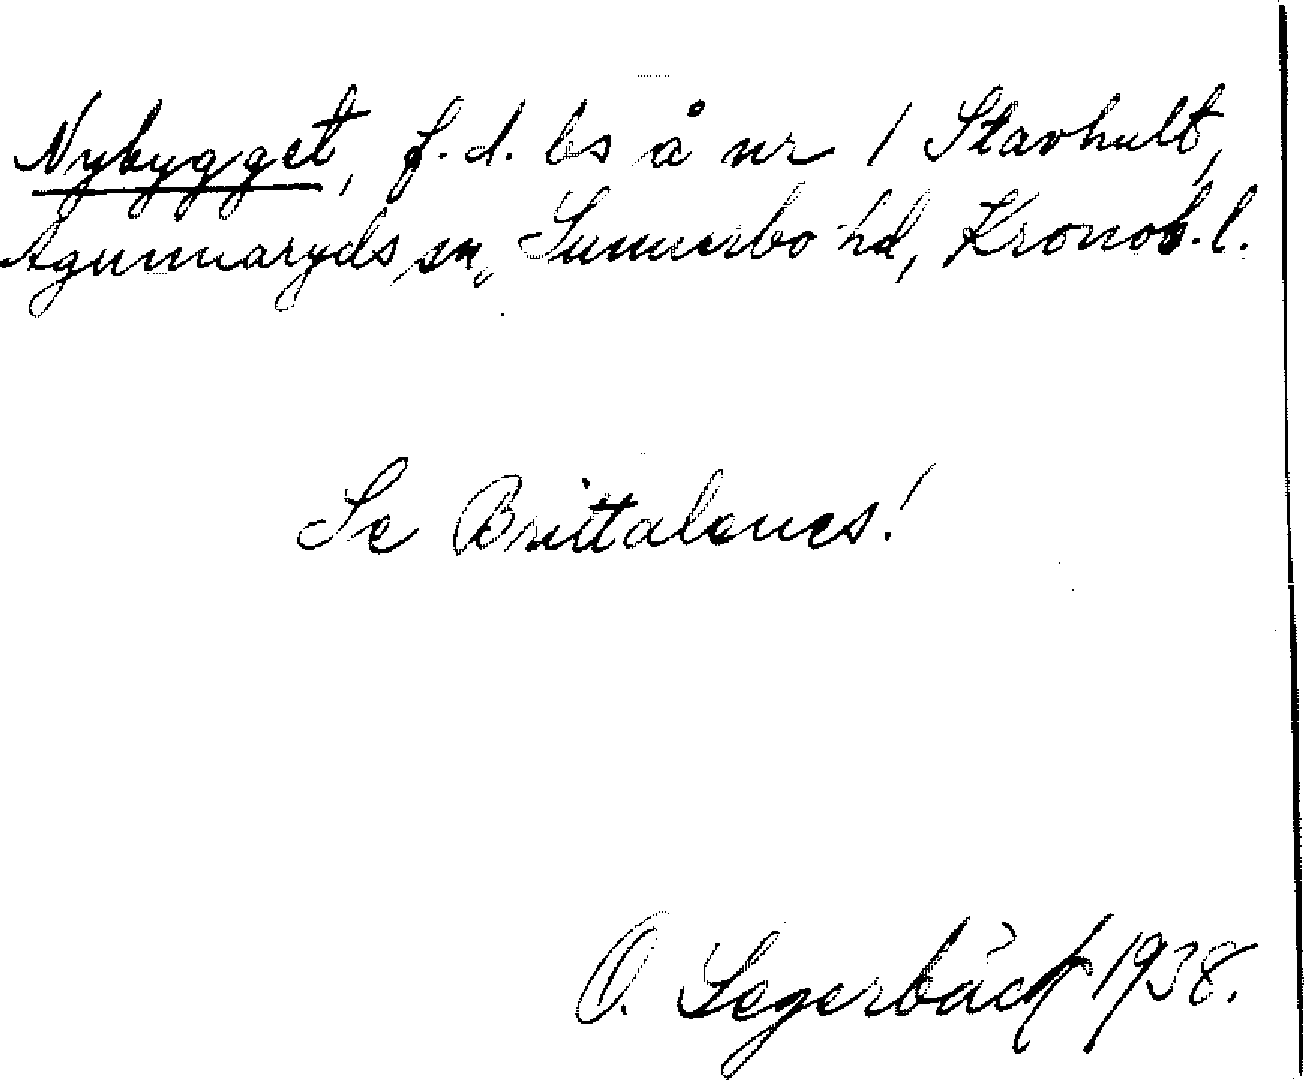 Nybygget, f.d. bs å nr 1 Stavhult,
Agunnaryds sn, Sunnerbo hd, Kronob.l.
Se Brittalenes!
O. Segerbäck 1938.